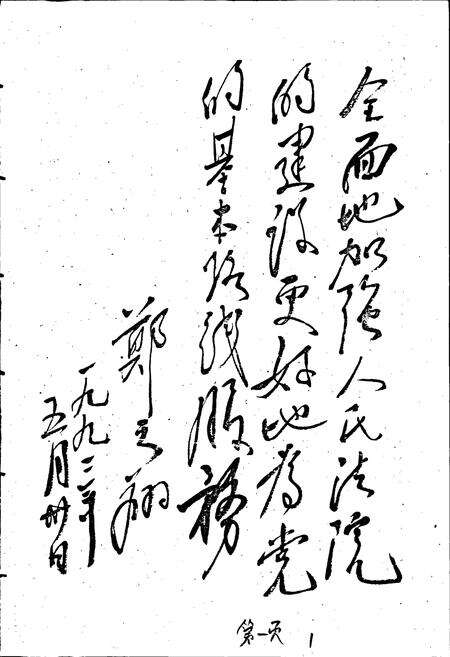 全面地加强人民法院
的建设更好地为党
的基本路线服务
鄭之翔
一九九二年
五月卅日
第一页 1